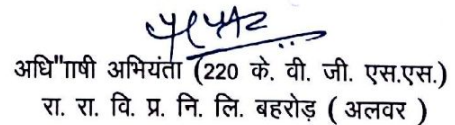 अधि"ााषी अभियंता (220 के. वी. जी. एस.एस.)
रा. रा. वि. प्र. नि. लि. बहरोड़ ( अलवर )